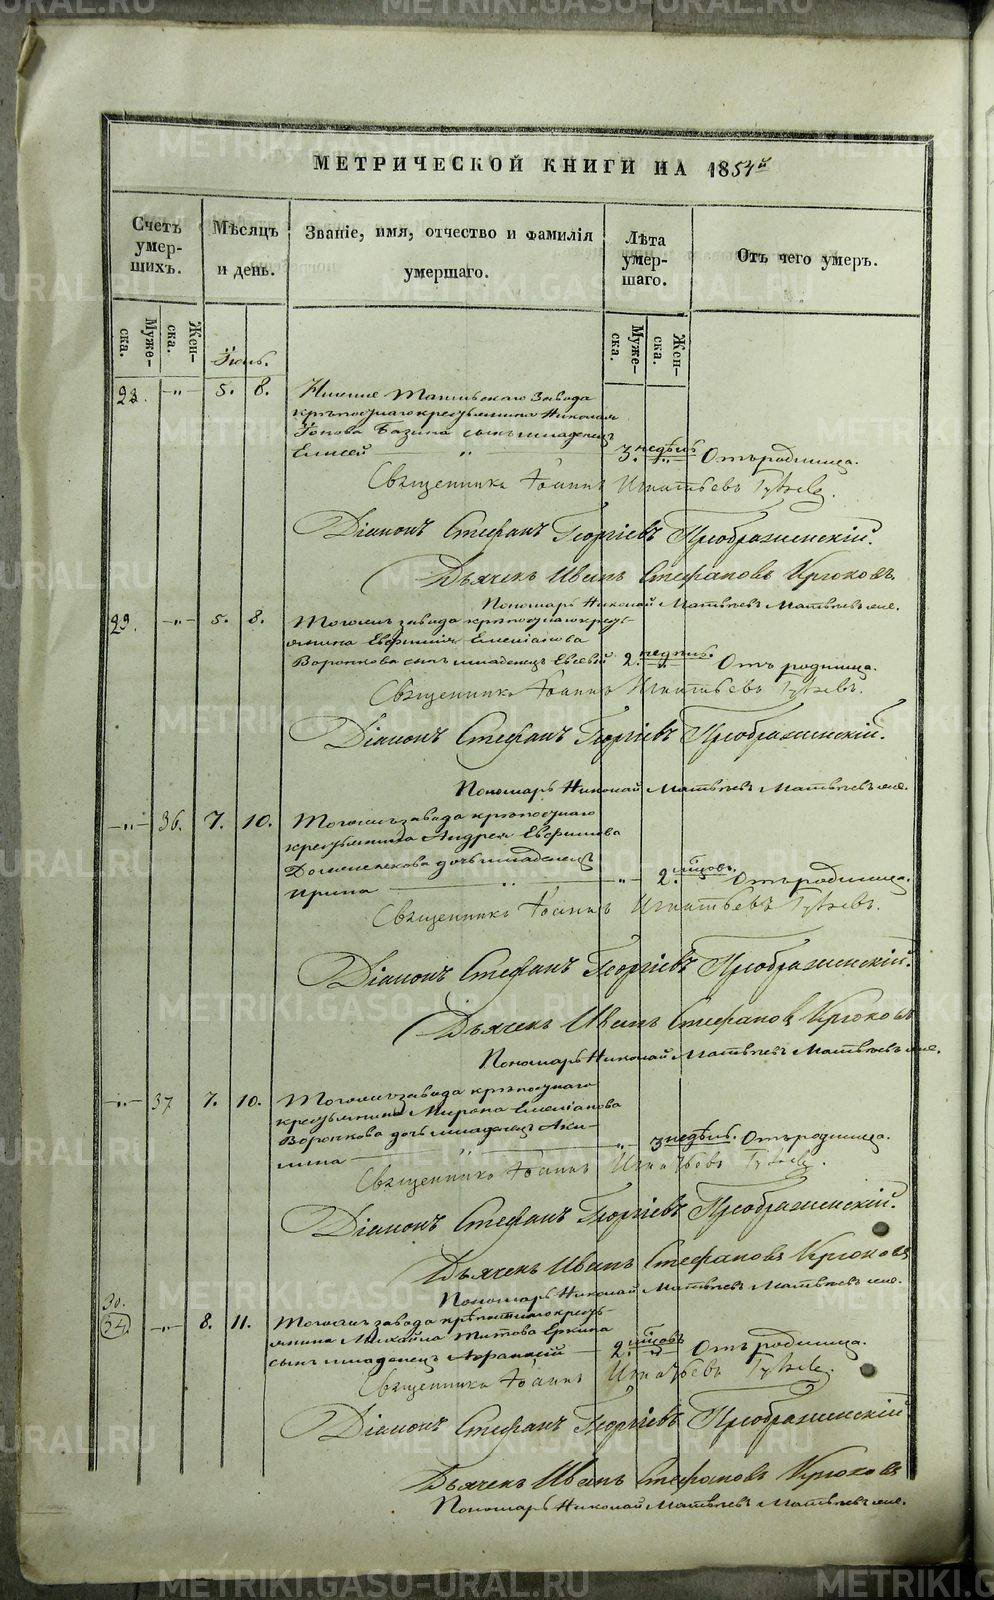 METRIKI.GASO-URAL.RU
МЕТРИЧЕСКОЙ КНИГИ НА 1854й
Счетъ умер-шихъ.
Мѣсяцъ и день.
Званіе, имя, отчество и фамилія умершаго.
Лѣта умер-шаго.
Отъ чего умеръ.
Муже-ска.
Жен-ска.
Муже-ска.
Жен-ска.
Іюнь.
28. -"- 5. 8. Нижне Завода
крѣпостнаго крестьянина Николая
сынъ младенецъ
Елисей " 3. недѣль Отъ родимца.
Священникъ Іоаннъ Игнатьевъ
Діаконъ Стефанъ Георгіевъ Преображенскій.
Дьячекъ Иванъ Стефановъ Крюковъ
Пономарь Николай Матвѣевъ Матвѣевъ
29. -"- 5. 8. Тогожъ завода крѣпостнаго кресть-
янина Евфимія Емеліанова
Воронкова сынъ младенецъ Евсевій 2. недѣль. Отъ родимца.
Священникъ Іоаннъ Игнатьевъ
Діаконъ Стефанъ Георгіевъ Преображенскій.
Пономарь Николай Матвѣевъ Матвѣевъ
-"- 36. 7. 10. Тогожъ завода крѣпостнаго
крестьянина Андрея Евфимова
дочь младенецъ
Ирина " -"- 2. мѣсяцовъ. Отъ родимца.
Священникъ Іоаннъ Игнатьевъ
Діаконъ Стефанъ Георгіевъ Преображенскій.
Дьячекъ Иванъ Стефановъ Крюковъ
Пономарь Николай Матвѣевъ Матвѣевъ
-"- 37 7. 10. Тогожъ завода крѣпостнаго
крестьянина Мирона Емеліанова
Воронкова дочь младенецъ Аки-
лина " -"- 3 недѣль. Отъ родимца.
Священникъ Іоаннъ Игнатьевъ
Діаконъ Стефанъ Георгіевъ Преображенскій.
Дьячекъ Иванъ Стефановъ Крюковъ
Пономарь Николай Матвѣевъ Матвѣевъ
30.
-"- 8. 11. Тогожъ завода крѣпостнаго кресть-
янина Михайла Титова Еркина
сынъ младенецъ Афанасій 2. мѣсяцовъ Отъ родимца.
Священникъ Іоаннъ Игнатьевъ
Діаконъ Стефанъ Георгіевъ Преображенскій
Дьячекъ Иванъ Стефановъ Крюковъ
Пономарь Николай Матвѣевъ Матвѣевъ